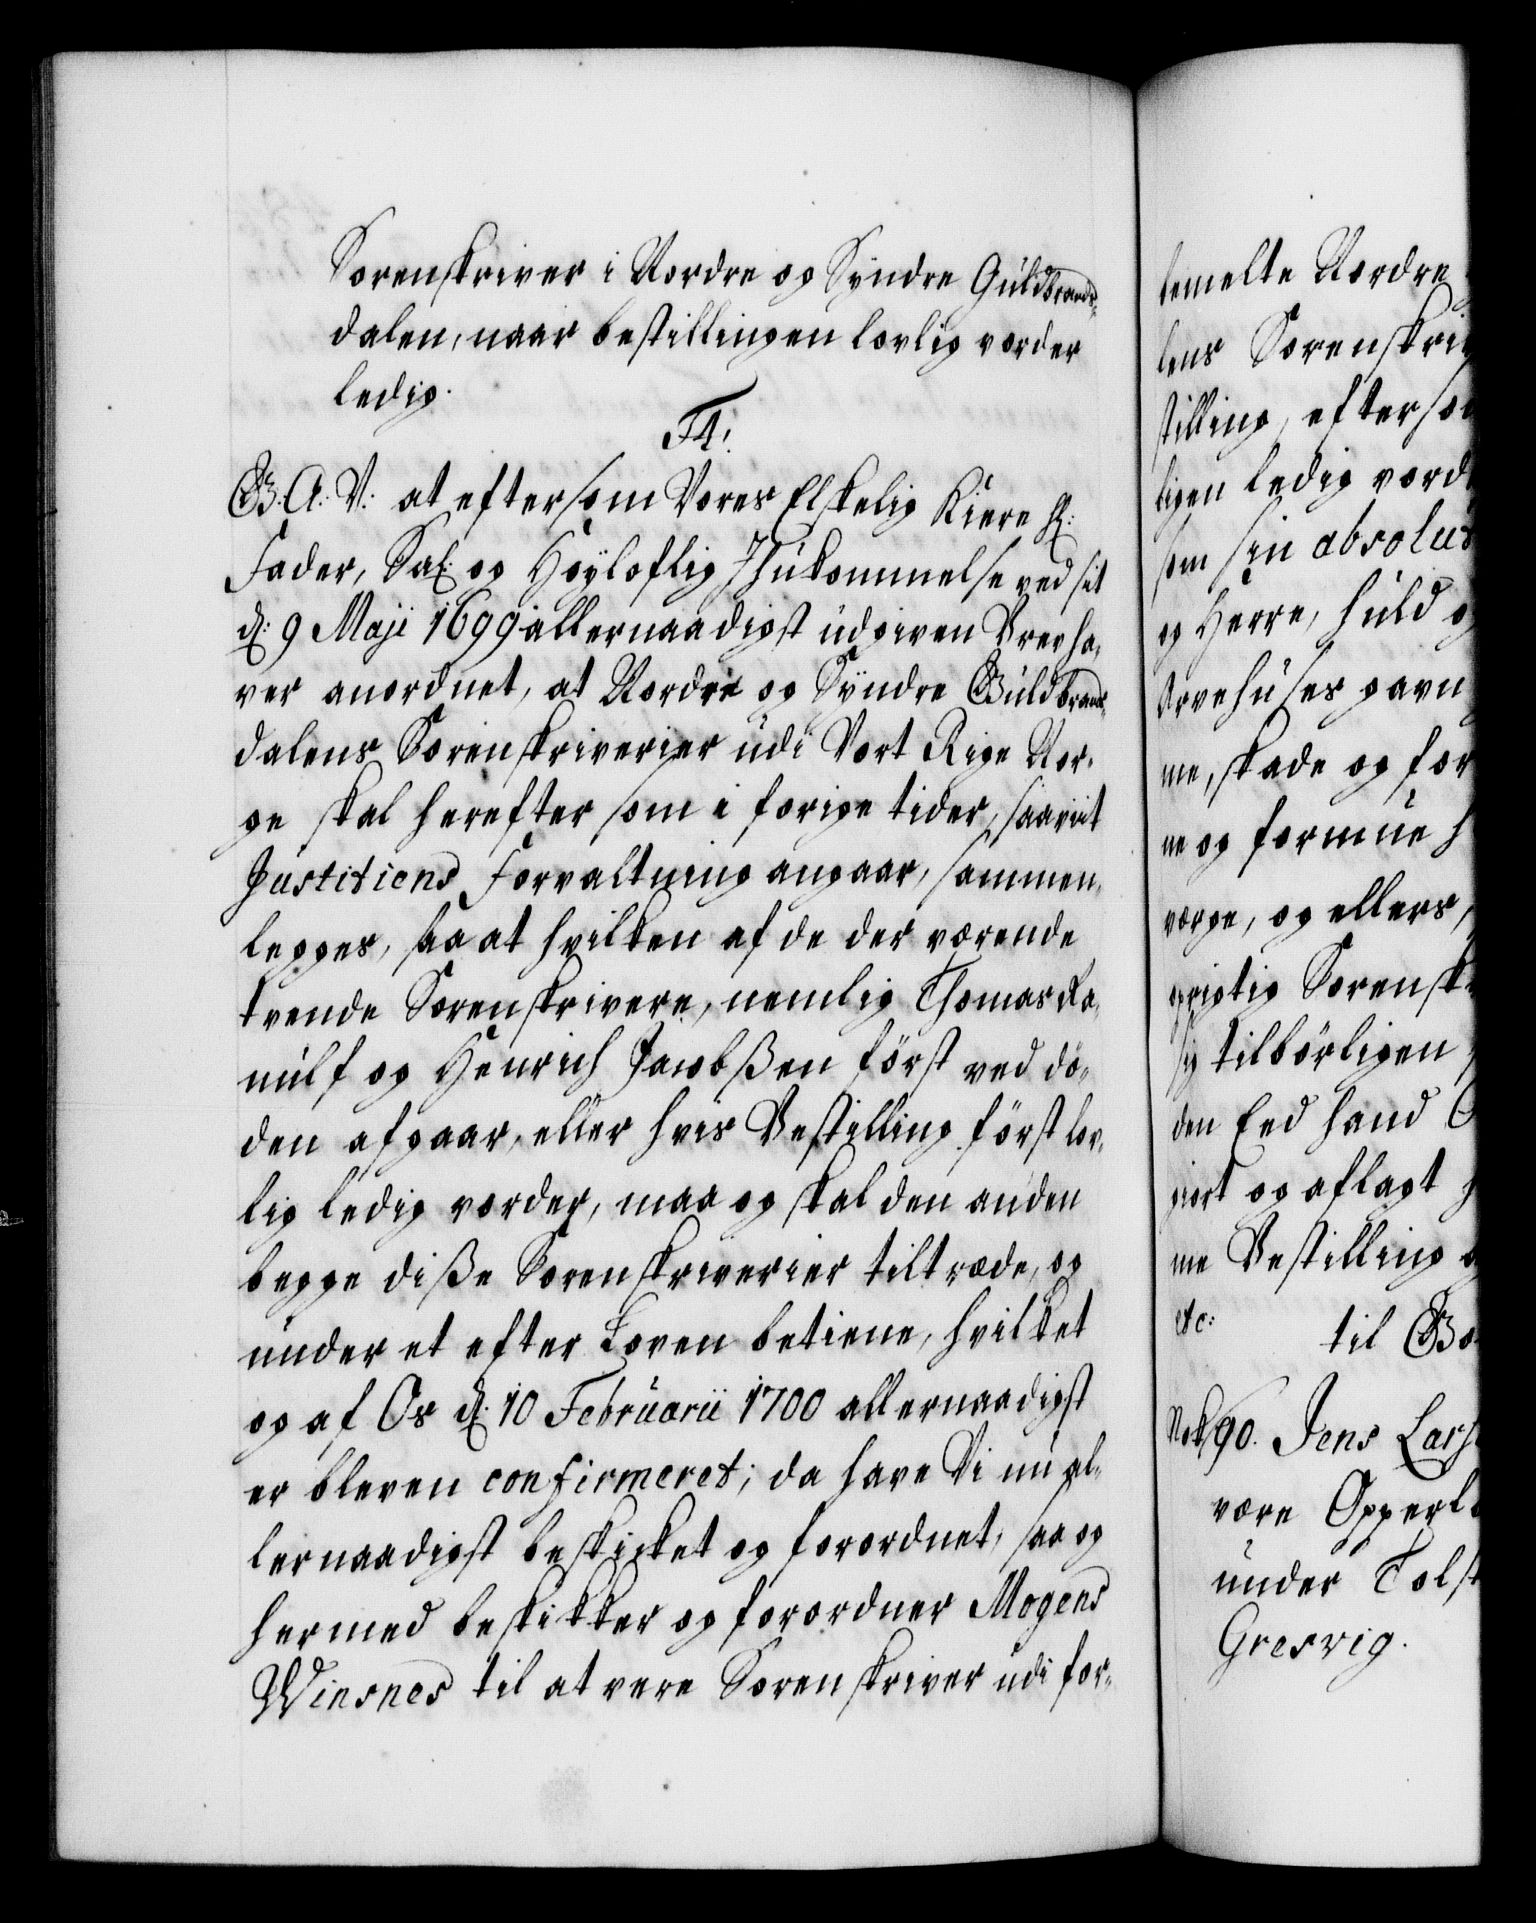 Sorenskriver i Nordre og Syndre Guldbrands-
dalen, naar bestillingen lovlig vorder
ledig.
F4:
G: A: V: at eftersom Vores Elskelig Kiere H:
Fader, Sal: og Høyloflig Ihukommelse ved sit
d: 9 Maji 1699 allernaadigst udgiven Brev ha-
ver anordnet, at Nordre og Syndre Guldbrands-
dalens Sorenskriverier udi Vort Rige Nor-
ge skal herefter som i forige tider, saavit
Justitiens Forvaltning angaar, sammen-
legges, saa at hvilken af de der værende
tvende Sorenskrivere, nemlig Thomas Ra-
nulf og Henrich Jacobßen först ved dö-
den afgaar, eller hvis Bestilling först lov-
lig ledig vorder, maa og skal den anden
begge diße Sorenskriverier tiltræde, og
under et efter Loven betiene, hvilket
og af Os d: 10 Februarii 1700 allernaadigst
er bleven confirmeret; da have Vi nu al-
lernaadigst beskicket og forordnet, saa og
hermed beskikker og forordner Mogens
Winsnes til at være Sorenskriver udi for-
bemelte Nordre
lens Sorenskri
stilling, efterso
ligen ledig vord
som sin absolut
og Herre, huld og
Arvehuses gavn
me, skade og for
ne og formue h
værge, og ellers,
rigtig Sorensk
sig tilbörligen
den Eed hand
giort og aflagt
me Bestilling
etc: til Bo
No 90. Jens Lars
være Opperl
under Tolst
Gresvig.